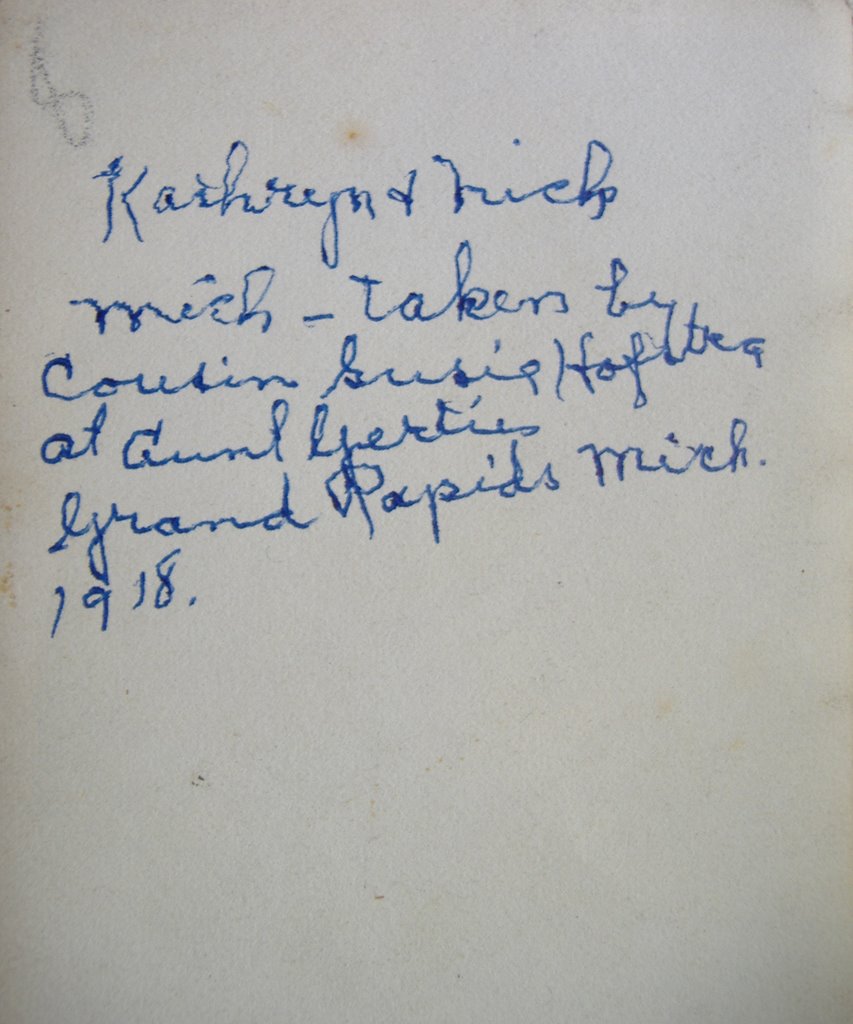 Kathryn & Nick
Mich - taken by
Cousin Susie Hofstra
at Aunt Gerties
Grand Rapids Mich.
1918.